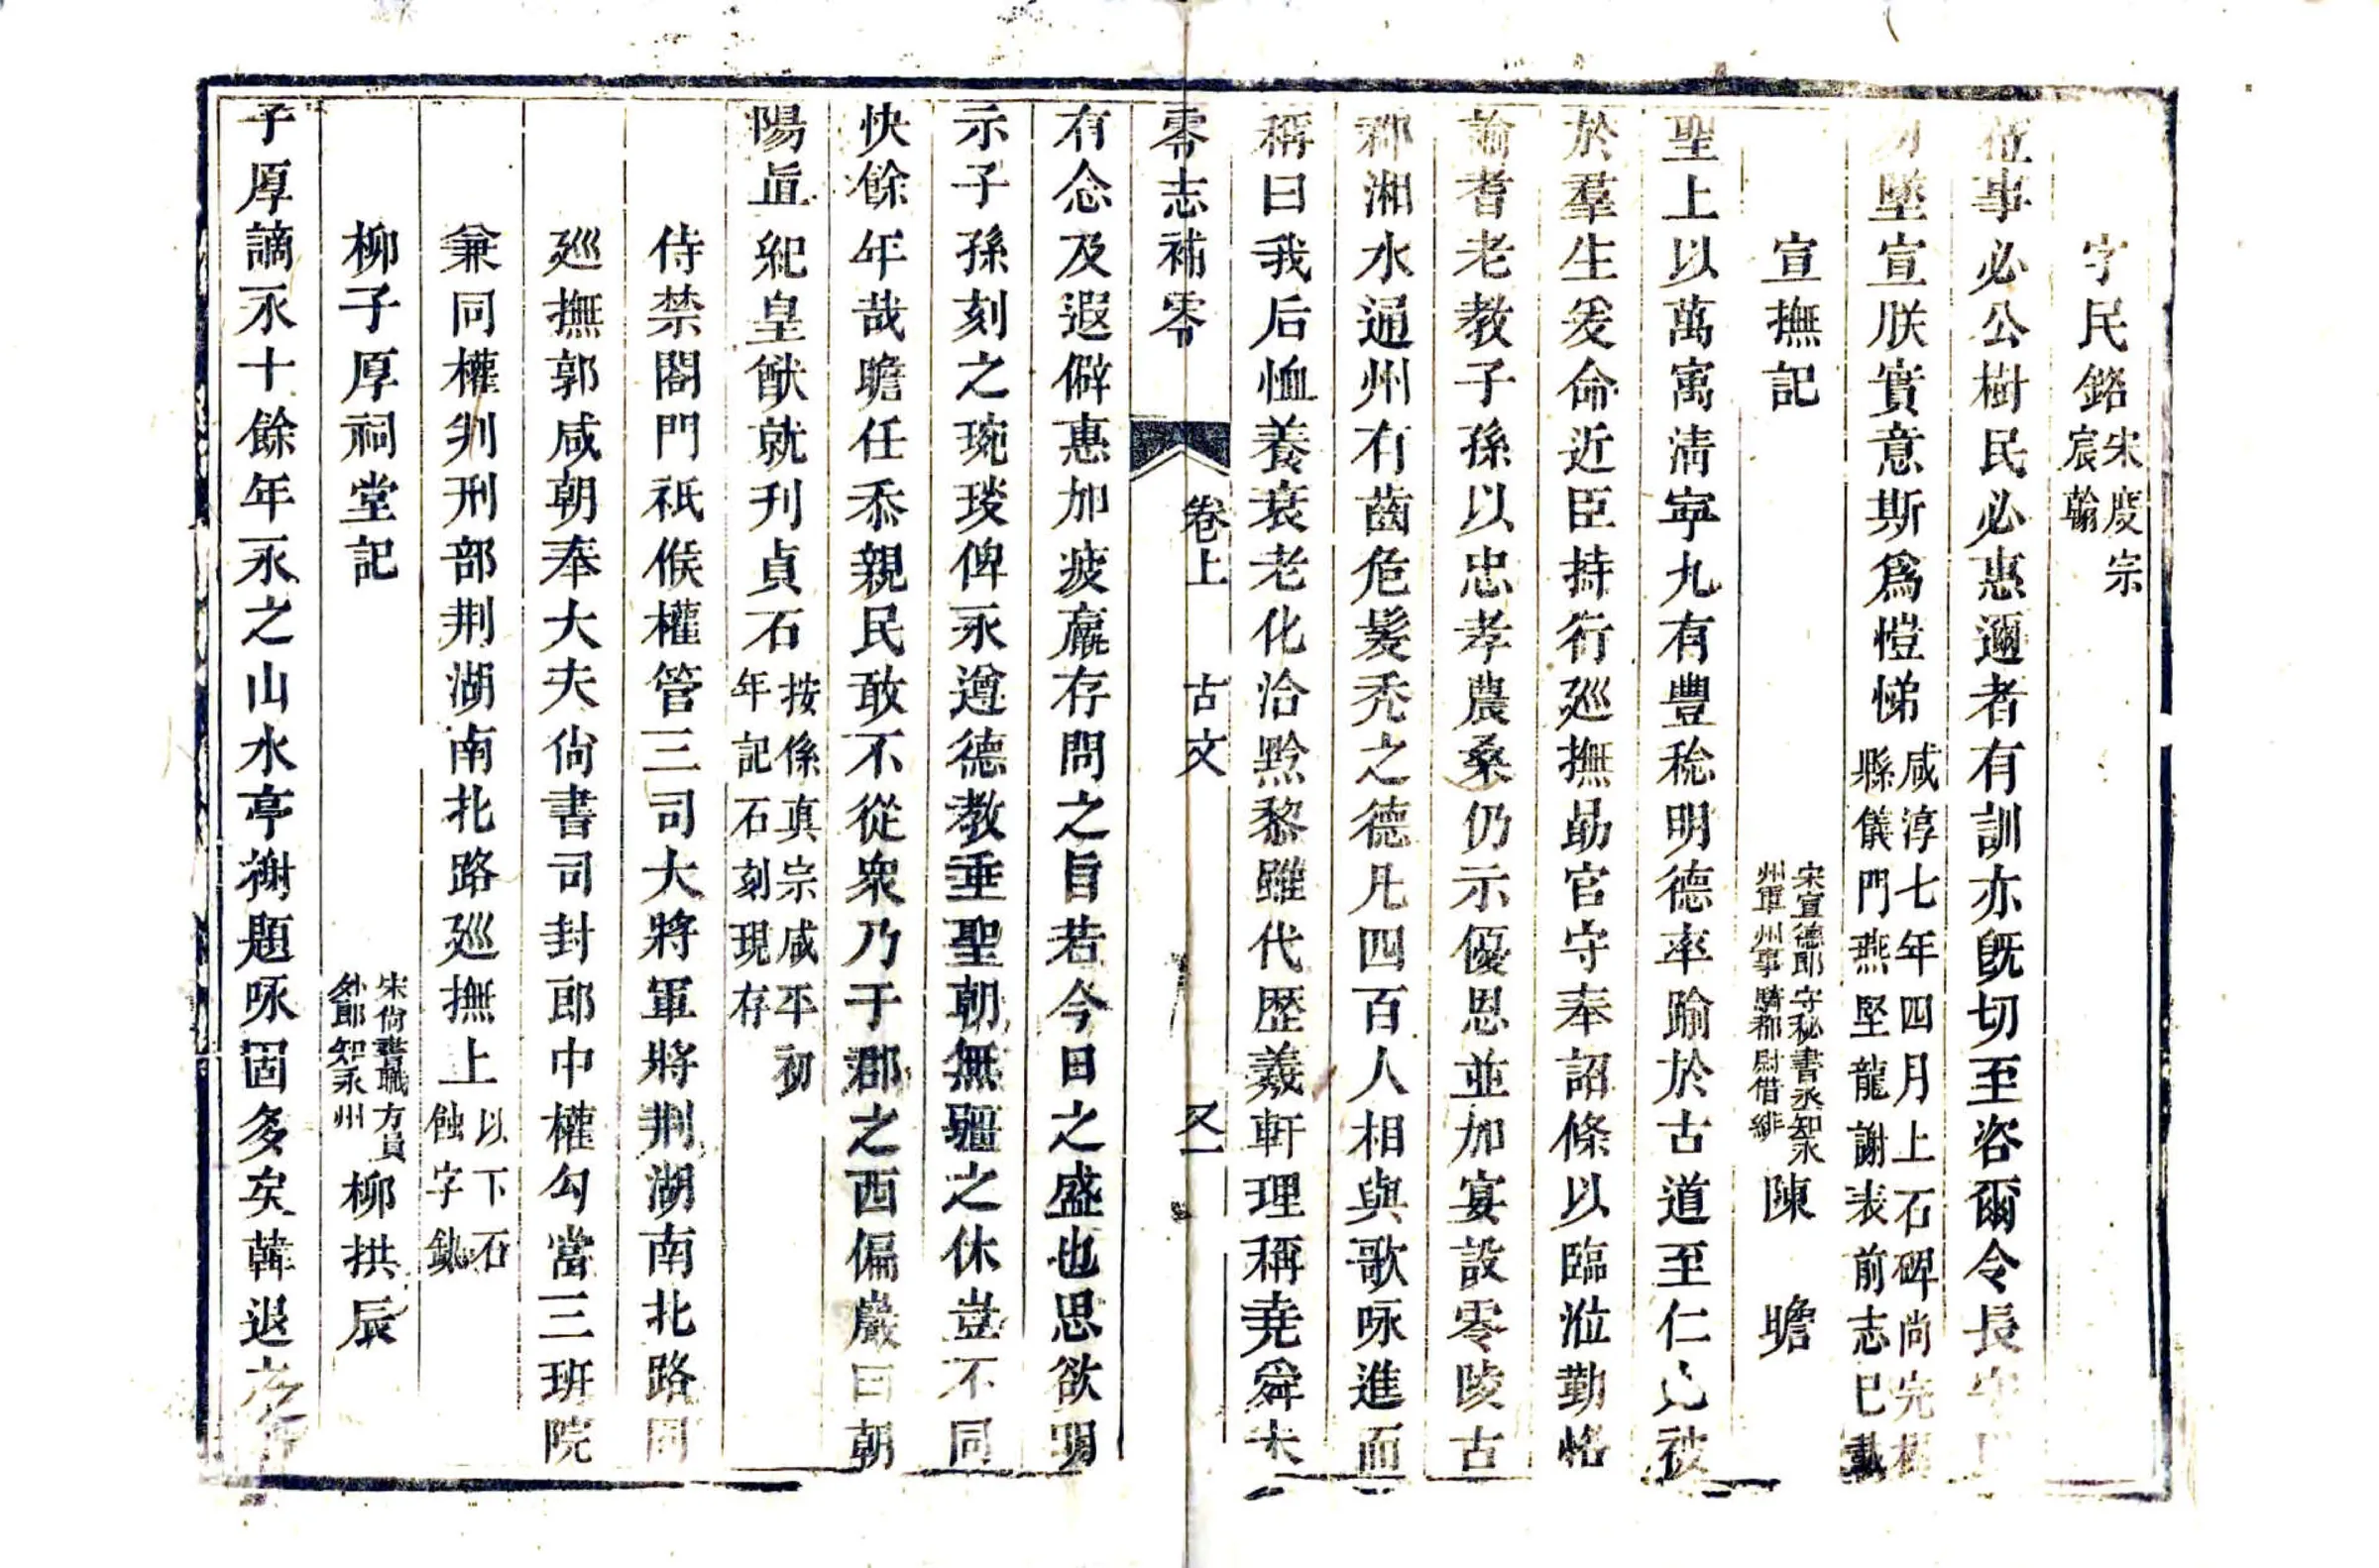 字民銘宋度宗宸翰
蒞事必公樹民必惠邇者有訓亦既切至咨爾令長
墜宣朕實意斯為愷悌咸淳七年四月上石碑尚完縣儀門燕堅龍謝表前志已載
宣撫記宋宣德郎守秘書丞知永州軍州事騎都尉借緋陳瞻
聖上以萬寓清寧九有豐稔明德率踰於古道至仁被
於羣生爰命近臣持行廵撫勗官守奉詔條以臨涖勤恪
諭耆老教子孫以忠孝農桑仍示優恩並加宴設零陵古
郡湘水通州有齒危髮禿之德凡四百人相與歌咏進而
稱曰我后恤養衰老化洽黔黎雖代歷羲軒理稱堯舜未
零志補零 卷上 古文 又一
有念及遐僻惠加疲羸存問之旨若今日之盛也思欲明
示子孫刻之琬琰俾永遵德教垂聖朝無疆之休豈不同
快餘年哉瞻任忝親民敢不從衆乃于郡之西偏巖曰朝
陽直紀皇猷就刊貞石按係真宗咸平初年記石刻現存
侍禁閤門祇候權管三司大將軍將荆湖南北路同
廵撫郭咸朝奉大夫尙書司封郎中權勾當三班院
兼同權判刑部荆湖南北路廵撫上以下石蝕字
柳子厚祠堂記宋尙書職方員外郎知永州柳拱辰
子厚謫永十餘年永之山水亭榭題咏固多矣韓退之